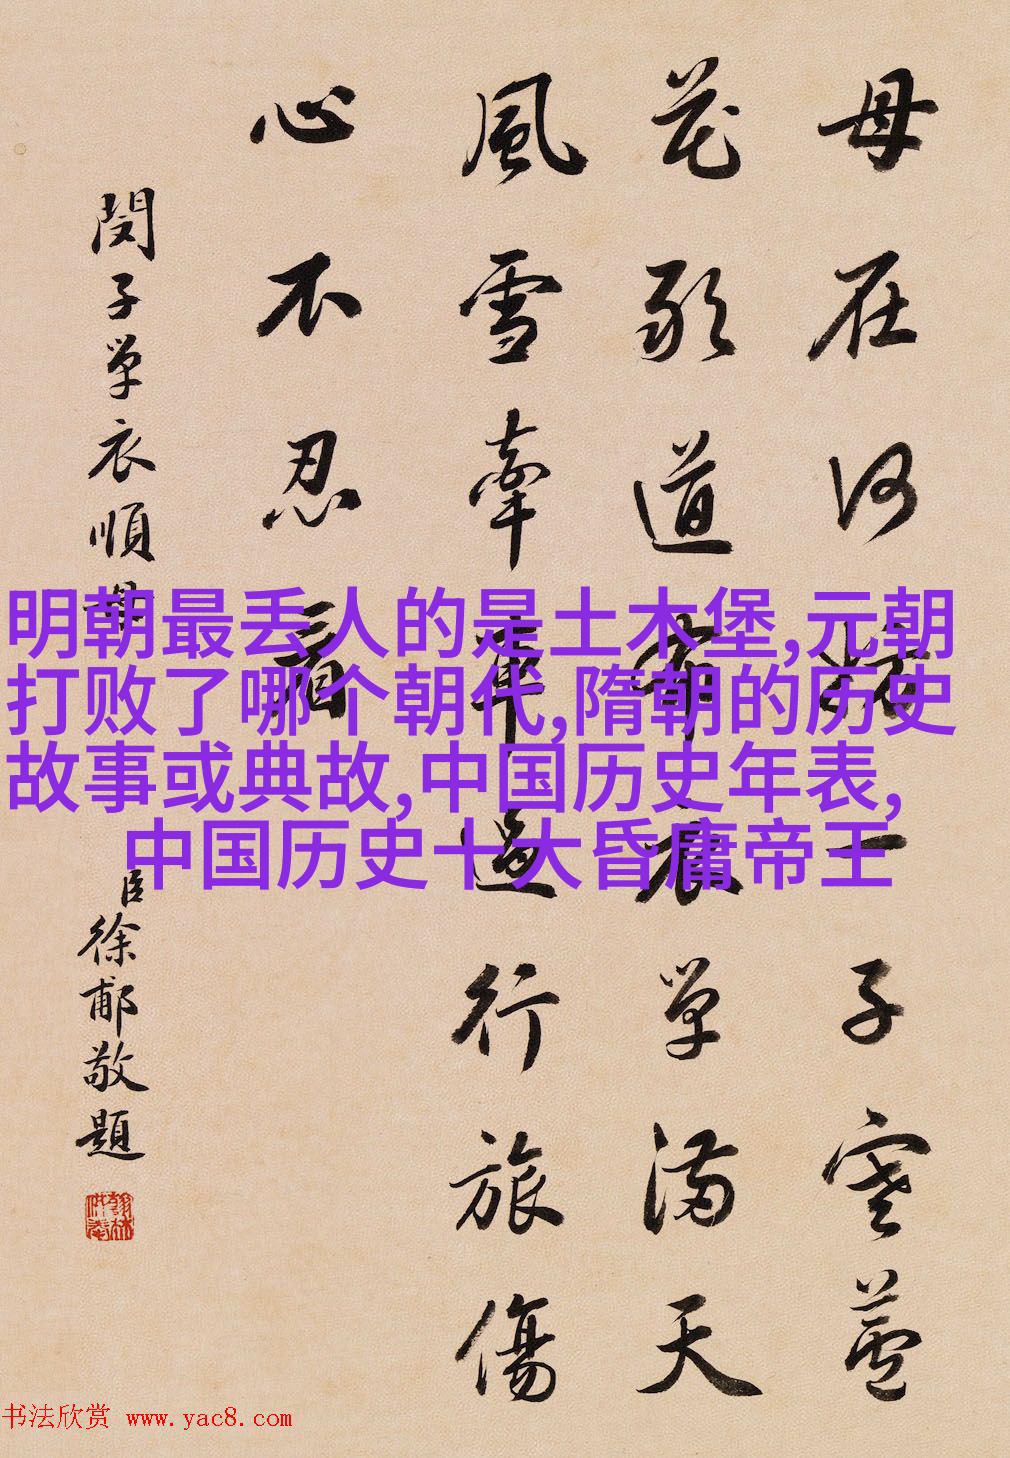 母在何妨一子寒蘆
花敢道布衣單滿天
風雪牽車過行旅傷
心不忍看
閔子單衣順母
臣徐郙敬題
明朝最丢人的是土木堡,元朝
打败了哪个朝代,隋朝的历史
故事或典故,中国历史年表,
中国历史十大昏庸帝王
书法欣赏 www.yac8.com